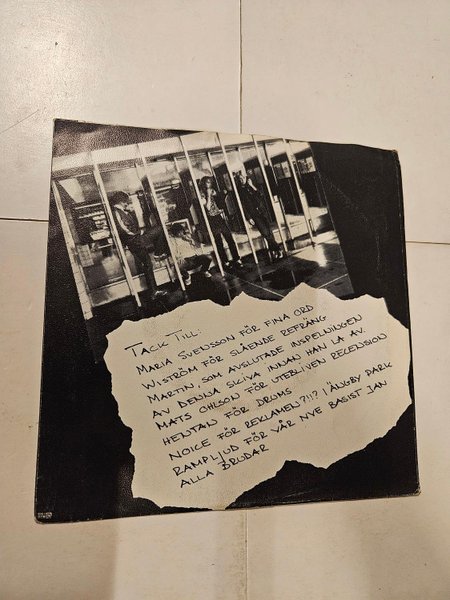 TACK TILL:
MARIA SVENSSON FÖR FINA ORD
WISTRÖM FÖR SLÅENDE REFRÄNG
MARTIN, SOM AVSLUTADE INSPELNINGEN
AV DENNA SKIVA INNAN HAN LA AV.
MATS OHLSON FÖR UTEBLIVEN RECENSION
HENTAN FÖR DRUMS
NOICE FÖR REKLAMEN?!? I ÄNGBY PARK
RAMPLJUD FÖR VÅR NYE BASIST JAN
ALLA BRUDAR